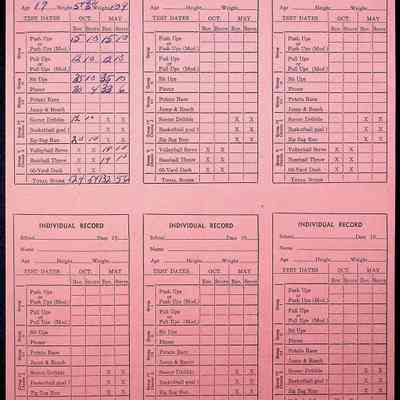 Age 17 Height Weight Age Height Weight Age Height Weight
TEST DATES OCT. MAY TEST DATES OCT. MAY TEST DATES OCT. MAY
Rec. Score Rec. Score Rec. Score Rec. Score Rec. Score Rec. Score
Push Ups 15 10 15 10 Push Ups Push Ups
or or or
Push Ups (Mod.) Push Ups (Mod.) Push Ups (Mod.)
Pull Ups 12 10 12 10 Pull Ups Pull Ups
or or or
Pull Ups (Mod.) Pull Ups (Mod.) Pull Ups (Mod.)
Sit Ups 10 10 Sit Ups Sit Ups
Potato Race Potato Race Potato Race
Jump & Reach Jump & Reach Jump & Reach
Soccer Dribble 12 10 X X Soccer Dribble X X Soccer Dribble X X
Basketball goal X X Basketball goal X X Basketball goal X X
Zig-Zag Run 20 10 X X Zig-Zag Run X X Zig-Zag Run X X
Volleyball Serve X X 10 Volleyball Serve X X Volleyball Serve X X
Baseball Throw X X 19 10 Baseball Throw X X Baseball Throw X X
60-Yard Dash X X 60-Yard Dash X X 60-Yard Dash X X
TOTAL SCORE 56 TOTAL SCORE TOTAL SCORE
INDIVIDUAL RECORD INDIVIDUAL RECORD INDIVIDUAL RECORD
School Date 19 School Date 19 School Date 19
Name Name Name
Age Height Weight Age Height Weight Age Height Weight
TEST DATES OCT. MAY TEST DATES OCT. MAY TEST DATES OCT. MAY
Rec. Score Rec. Score Rec. Score Rec. Score Rec. Score Rec. Score
Push Ups Push Ups Push Ups
or or or
Push Ups (Mod.) Push Ups (Mod.) Push Ups (Mod.)
Pull Ups Pull Ups Pull Ups
or or or
Pull Ups (Mod.) Pull Ups (Mod.) Pull Ups (Mod.)
Sit Ups Sit Ups Sit Ups
Potato Race Potato Race Potato Race
Jump & Reach Jump & Reach Jump & Reach
Soccer Dribble X X Soccer Dribble X X Soccer Dribble X X
Basketball goal X X Basketball goal X X Basketball goal X X
Zig Zag Run X X Zig-Zag Run X X Zig-Zag Run X X